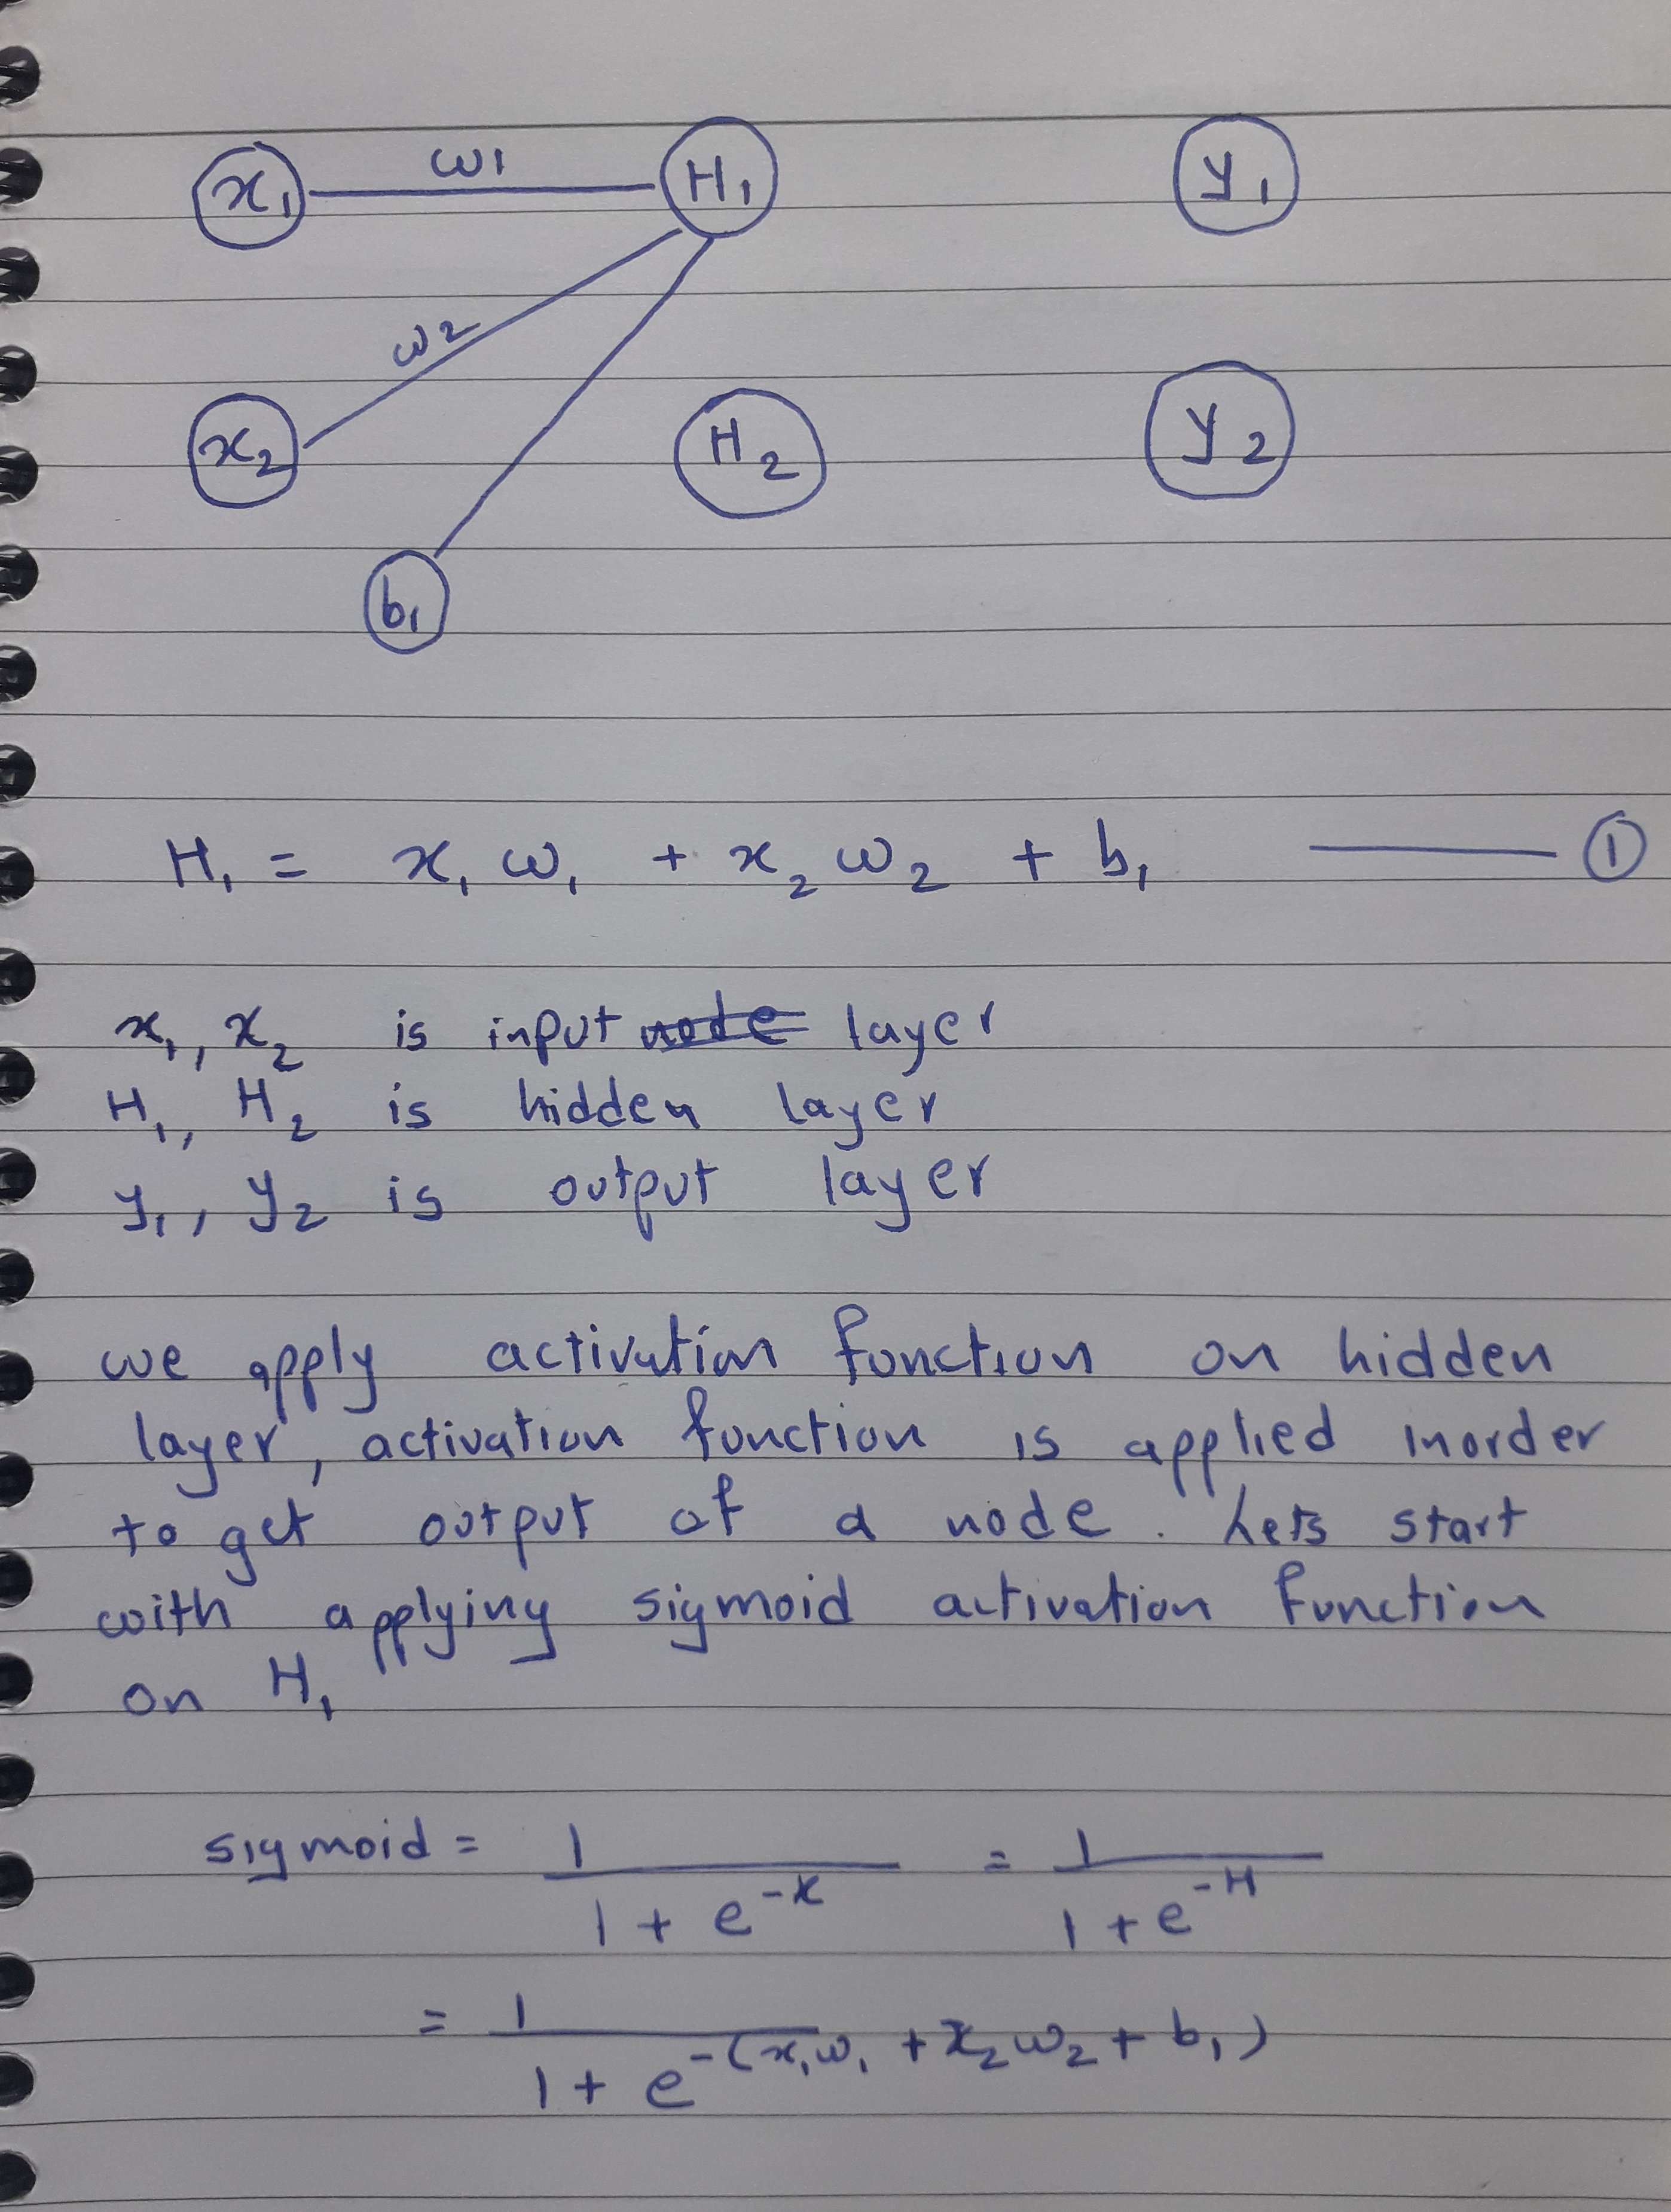 x₁ ω1 H₁ y₁
ω2
x₂ H₂ y₂
b₁
H₁ = x₁ω₁ + x₂ω₂ + b₁ —— ①
x₁, x₂ is input node layer
H₁, H₂ is hidden layer
y₁, y₂ is output layer
we apply activation function on hidden
layer, activation function is applied inorder
to get output of a node. Lets start
with applying sigmoid activation function
on H₁
sigmoid = 1 / (1 + e^-x) = 1 / (1 + e^-H)
= 1 / (1 + e^-(x₁ω₁ + x₂ω₂ + b₁))